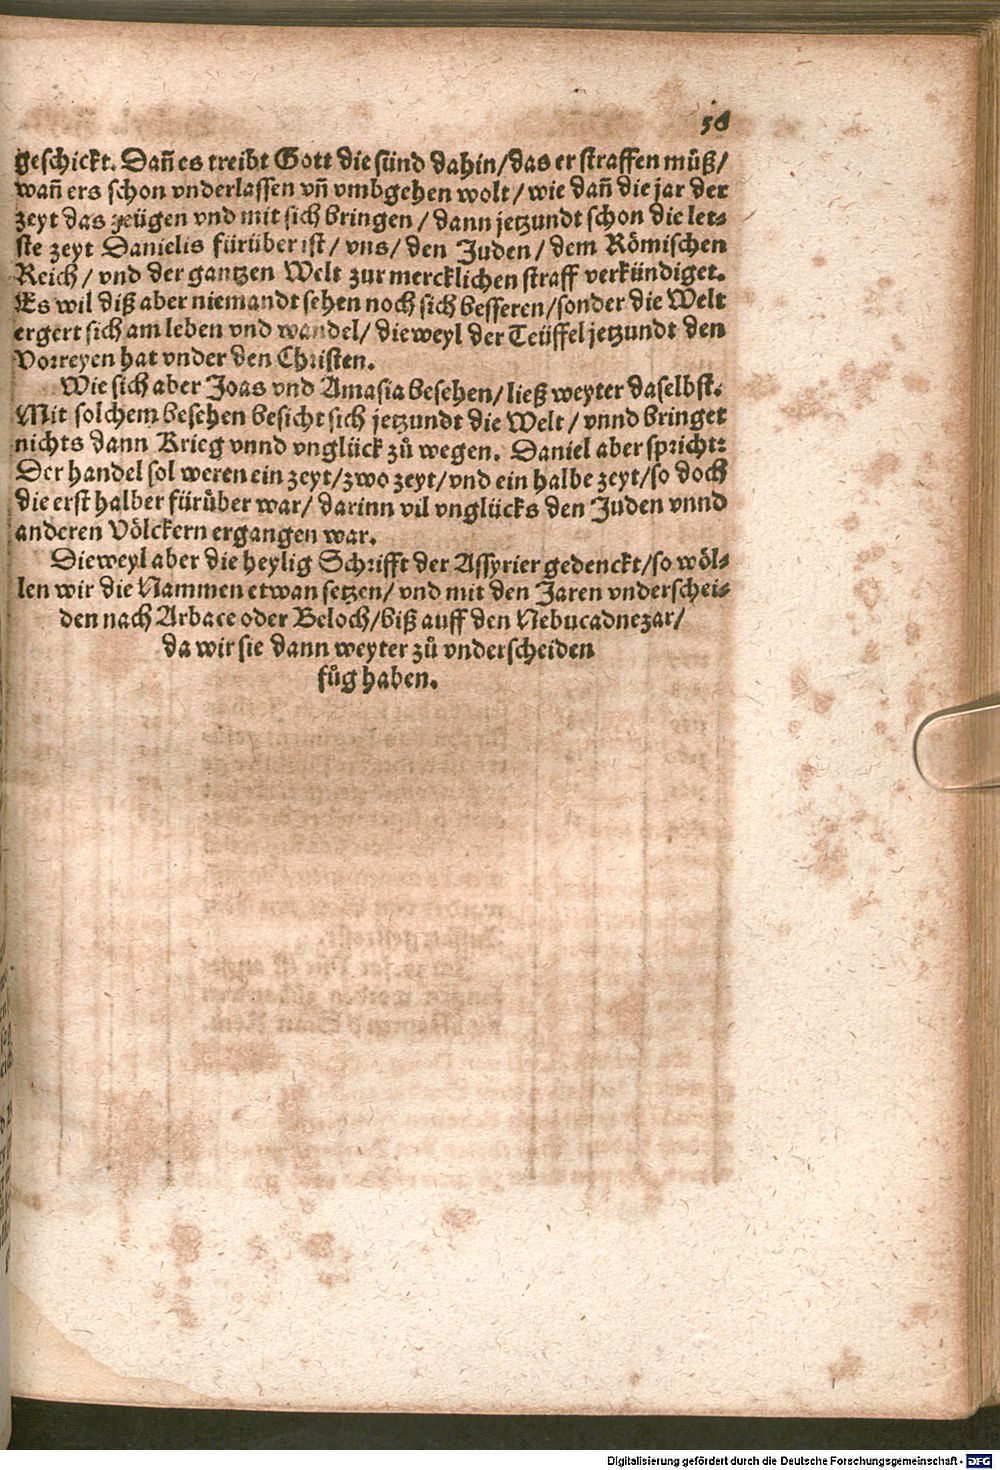 56
geschickt. Dañ es treibt Gott die sünd dahin/das er straffen müß/
wañ ers schon vnderlassen vñ vmbgehen wolt/wie dañ die jar der
zeyt das zeügen vnd mit sich bringen/dann jetzundt schon die let⸗
ste zeyt Danielis fürüber ist/vns/den Juden/dem Römischen
Reich/vnd der gantzen Welt zur mercklichen straff verkündiget.
Es wil diß aber niemandt sehen noch sich besseren/sonder die Welt
ergert sich am leben vnd wandel/dieweyl der Teüffel jetzundt den
Vorreyen hat vnder den Christen.
Wie sich aber Joas vnd Amasia besehen/ließ weyter daselbst.
Mit solchem besehen besicht sich jetzundt die Welt/vnnd bringet
nichts dann Krieg vnnd vnglück zů wegen. Daniel aber spricht:
Der handel sol weren ein zeyt/zwo zeyt/vnd ein halbe zeyt/so doch
die erst halber fürüber war/darinn vil vnglücks den Juden vnnd
anderen Völckern ergangen war.
Dieweyl aber die heylig Schrifft der Assyrier gedenckt/so wöl⸗
len wir die Nammen etwan setzen/vnd mit den Jaren vnderschei⸗
den nach Arbace oder Beloch/biß auff den Nebucadnezar/
da wir sie dann weyter zů vnderscheiden
fůg haben.
Digitalisierung gefördert durch die Deutsche Forschungsgemeinschaft - DFG